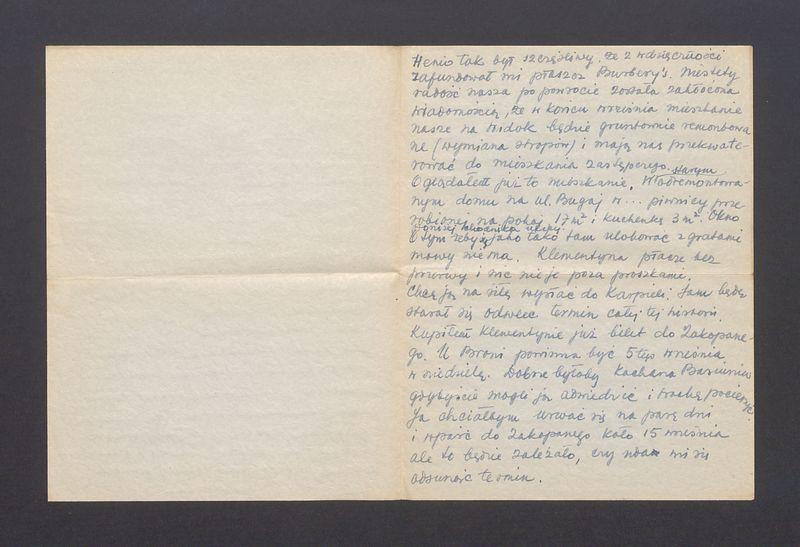 Henio tak był szczęśliwy, że z wdzięczności
zafundował mi płaszcz Burbery's. Niestety
radość nasza po powrocie została zakłócona
wiadomością, że w końcu września mieszkanie
nasze na Widok będzie gruntownie remontowa
ne (wymiana stropów) i mają nas przekwate-
rować do mieszkania zastępczego.
Oglądałem już to mieszkanie. W starym odremontowa-
nym domu na ul. Bugaj w... piwnicy prze
robionej na pokój 17 m² i kuchenkę 3 m². Okno
poniżej chodnika ulicy.
O tym żeby się jako tako tam ulokować z gratami
mowy nie ma. Klementyna płacze bez
przerwy i nic nie je poza proszkami.
Chcę ją na siłę wysłać do Karpieli. Sam będę
starał się odwlec termin całej tej historii.
Kupiłem Klementynie już bilet do Zakopane-
go. U Broni powinna być 5tego września
w niedzielę. Dobrze byłoby kochana Basiuniu
gdybyście mogli ją odwiedzić i trochę pocieszyć.
Ja chciałbym urwać się na parę dni
i wpaść do Zakopanego koło 15 września
ale to będzie zależało, czy uda mi się
odsunąć termin.